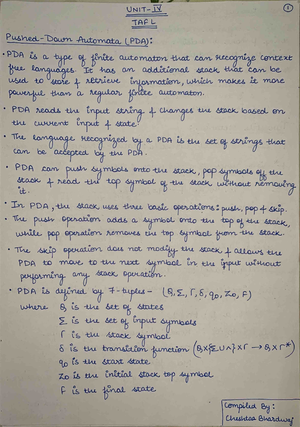 UNIT-IV
TAFL
1
Pushed-Down Automata (PDA):
• PDA is a type of finite automaton that can recognize context
free languages. It has an additional stack that can be
used to store & retrieve information, which makes it more
powerful than a regular finite automaton.
• PDA reads the input string & changes the stack based on
the current input & state
• The language recognized by a PDA is the set of strings that
can be accepted by the PDA.
• PDA can push symbols onto the stack, pop symbols off the
stack & read the top symbol of the stack without removing
it.
• In PDA, the stack uses three basic operations: push, pop & skip.
• The push operation adds a symbol onto the top of the stack,
while pop operation removes the top symbol from the stack.
• The skip operation does not modify the stack & allows the
PDA to move to the next symbol in the input without
performing any stack operation.
• PDA is defined by 7-tuples- (Q, Σ, Γ, δ, q0, Z0, F)
where Q is the set of states
Σ is the set of input symbols
Γ is the stack symbol
δ is the transition function (Q×{Σ∪∧}×Γ → Q×Γ*)
q0 is the start state
Z0 is the initial stack top symbol
F is the final state
Compiled By:
Bhardwaj